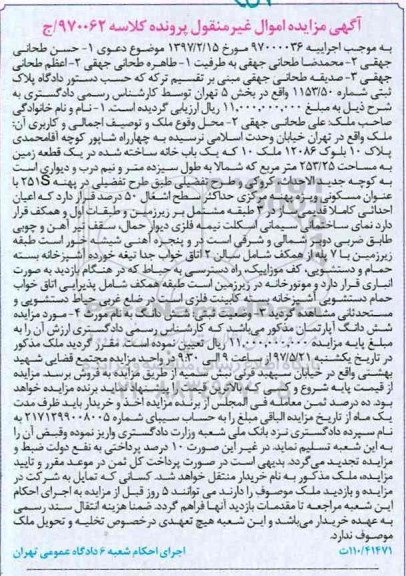 آگهی مزایده اموال غیر منقول پرونده کلاسه ۹۷۰۰۶۲/ج
به موجب اجراییه ۹۷۰۰۰۰۳۶ مورخ ۱۳۹۷/۲/۱۵ موضوع دعوی ۱- حسن طلحانی
جهقی ۲- محمدرضا طلحانی جهقی به طرفیت ۱- طاهره طلحانی جهقی ۲- اعظم طلحانی
جهقی ۳- صدیقه طلحانی جهقی مبنی بر تقسیم ترکه که حسب دستور دادگاه پلاک
ثبتی شماره ۱۱۵۳/۵۰ واقع در بخش ۵ تهران توسط کارشناس رسمی دادگستری به
شرح ذیل به مبلغ ۱۱,۰۰۰,۰۰۰,۰۰۰ ریال ارزیابی گردیده است. ۱- نام و نام خانوادگی
صاحب ملک: علی طلحانی جهقی ۲- محل وقوع ملک و توصیف اجمالی و کاربری آن:
ملک واقع در تهران خیابان وحدت اسلامی نرسیده به چهارراه شاپور کوچه آقامحمدی
پلاک ۱۰ بلوک ۱۲۰۸۶ ملک ۱۰ که یک باب خانه ساخته شده در یک قطعه زمین
به مساحت ۲۵۳/۲۵ متر مربع که شمالا به طول سیزده متر و نیم درب و دیواری است
به کوچه جدید الاحداث کروکی و طرح تفضیلی طبق طرح تفضیلی در پهنه S۲۵۱ با
عنوان مسکونی ویژه پهنه مرکزی حداکثر سطح اشغال ۵۰ درصد قرار دارد که اعیان
احداثی کاملا قدیمی ساز در ۲ طبقه مشتمل بر زیرزمین و طبقات اول و همکف قرار
دارد نمای ساختمانی سیمانی اسکلت نیمه فلزی دیوار حمال، سقف تیر آهن و چوبی
طابق ضربی دوبر شمالی و شرقی است در و پنجره آهنی شیشه خور است طبقه
زیرزمین با ۷ پله از همکف شامل سالن ۲ اتاق خواب جدا تیغه خورده آشپزخانه بسته
حمام و دستشویی، کف موزاییک، راه دسترسی به حیاط که در هنگام بازدید به صورت
انباری قرار دارد و موتورخانه در زیرزمین است طبقه همکف شامل پذیرایی اتاق خواب
حمام دستشویی آشپزخانه بسته کابینت فلزی است در ضلع غربی حیاط دستشویی و
مستحدثی مشاهده گردید ۳- وضعیت ثبتی: شش دانگ به نام مورث ۴- مورد مزایده
شش دانگ آپارتمان مذکور می‌باشد که کارشناس رسمی دادگستری ارزش آن را به
مبلغ پایه مزایده ۱۱,۰۰۰,۰۰۰,۰۰۰ ریال تعیین نموده است مقرر گردید ملک مذکور
در تاریخ یکشنبه ۹۷/۵/۲۱ از ساعت ۹ الی ۹:۳۰ در واحد مزایده مجتمع قضایی شهید
بهشتی واقع در خیابان سپهبد قرنی نبش سمیه از طریق مزایده به فروش برسد. مزایده
از قیمت پایه شروع و کسی که بالاترین قیمت را پیشنهاد نماید برنده مزایده خواهد
بود. ده درصد ثمن معامله فی المجلس از برنده مزایده اخذ و خریدار باید ظرف مدت
یک ماه از تاریخ مزایده الباقی مبلغ را به حساب سیبای شماره ۲۱۷۱۲۹۹۰۰۸۰۰۵ به
نام سپرده دادگستری نزد بانک ملی شعبه وزارت دادگستری واریز نموده و قبض آن را
به این شعبه تسلیم نماید. در غیر این صورت ۱۰ درصد پرداختی به نفع دولت ضبط و
مزایده تجدید می‌گردد. بدیهی است در صورت پرداخت کل ثمن در موعد مقرر و تایید
مزایده، ملک مذکور به نام خریدار منتقل خواهد شد. کسانی که تمایل به شرکت در
مزایده و بازدید ملک موصوف را دارند می توانند ۵ روز قبل از مزایده به اجرای احکام
این شعبه مراجعه تا مقدمات بازدید آنها فراهم گردد. ضمنا هزینه انتقال سند رسمی
به عهده خریدار می‌باشد و این شعبه هیچ تعهدی در خصوص تخلیه و تحویل ملک
موصوف ندارد.
۱۱۰/۴۱۴۷۱ت اجرای احکام شعبه ۶ دادگاه عمومی تهران